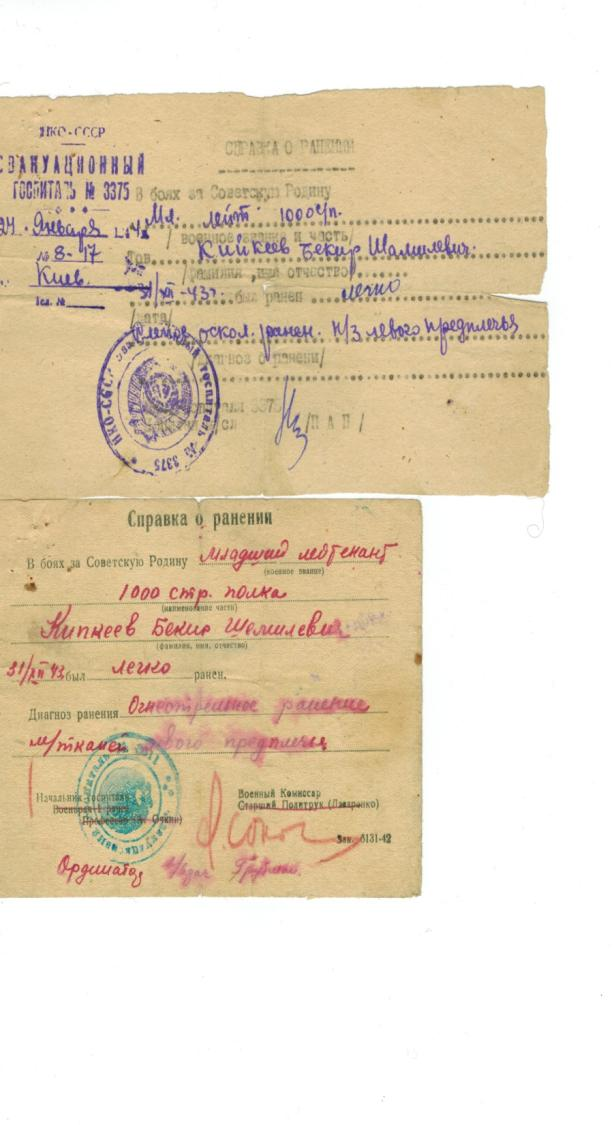 НКО-СССР
ЭВАКУАЦИОННЫЙ
ГОСПИТАЛЬ № 3375
24 Января 194
№ 8-17
Киев.
СПРАВКА О РАНЕНИИ
В боях за Советскую Родину
Мл. лейт. 1000 с/п.
/ военное звание и часть/
Тов. Кийкеев Бекир Шамилевич.
/фамилия ,имя отчество/
31/XII-43г. был ранен легко
/дата/
Слепое оскол. ранен. н/3 левого предплечья
/диагноз о ранени/
3375
/П А П /
НКО-СССР Эвакуационный госпиталь № 3375
Справка о ранении
В боях за Советскую Родину Младший лейтенант
(военное звание)
1000 стр. полка
(наименование части)
Кипкеев Бекир Шемилевич
(фамилия, имя, отчество)
31/XII 43 был легко ранен.
Диагноз ранения Огнестрельное ранение
м/тканей левого предплечья
Начальник госпиталя
Военврач 1 ранга
Профессор
Военный Комиссар
Старший Политрук (Лазаренко)
Зак. 6131-42
Ординатор в/врач